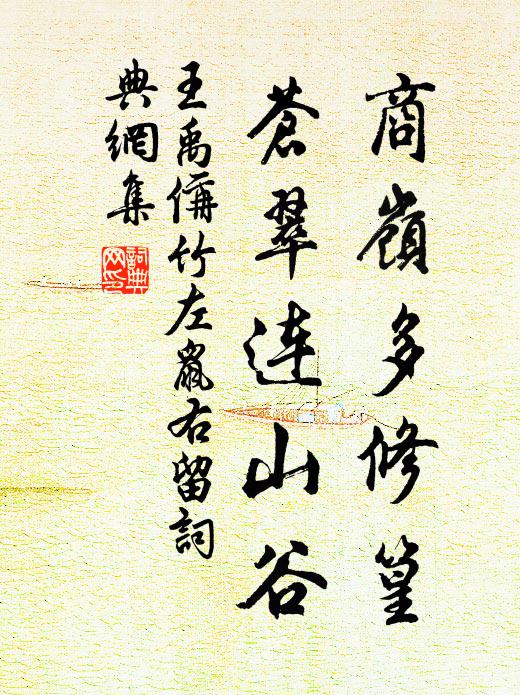 商嶺多修篁
蒼翠连山谷
王禹偁竹左鼠右留詞
典網集
詞典
网印